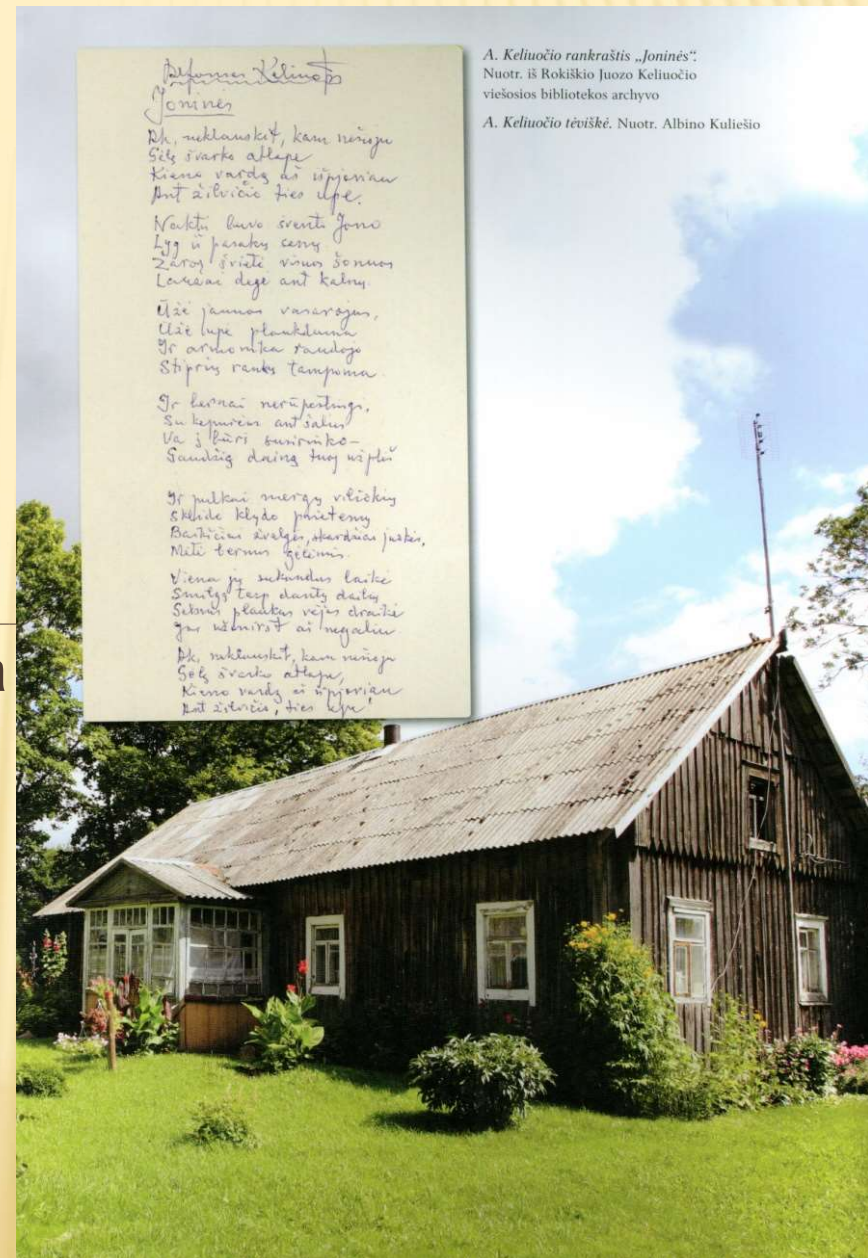 Alfonsas Keliuotis
Joninės
Ak, neklauskit, kam nešioju
Gėlę švarko atlape
Kieno vardą aš išpjoviau
Ant žilvičio ties upe.
Naktis buvo švento Jono
Lyg iš pasakų senų
Žaros švietė visuos šonuos
Laužai degė ant kalnų.
Ūžė jaunas vasarojus,
Ūžė upė plaukdama
Ir armonika raudojo
Stiprių rankų tampoma.
Ir bernai nerūpestingi,
Su kepurėm ant šalies
Va į būrį susirinko –
Gaudžią dainą tuoj užplėš
Ir pulkai mergų
Skleidė klydo prietemų
žvalgės, skardžiai juokės,
Mėtė bernus gėlėmis.
Viena jų sukandus laikė
Smilgą tarp dantų dailių
Šelmis plaukus vėjas draikė
Jos užmiršt aš negaliu
Ak, neklauskit, kam nešioju
Gėlę švarko atlape,
Kieno vardą aš išpjoviau
Ant žilvičio, ties upe!
A. Keliuočio rankraštis „Joninės“.
Nuotr. iš Rokiškio Juozo Keliuočio
viešosios bibliotekos archyvo
A. Keliuočio tėviškė. Nuotr. Albino Kuliešio